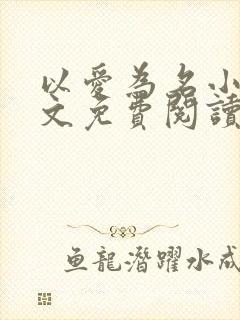 以愛為名小
文免費閱讀
鱼龍潛躍水成